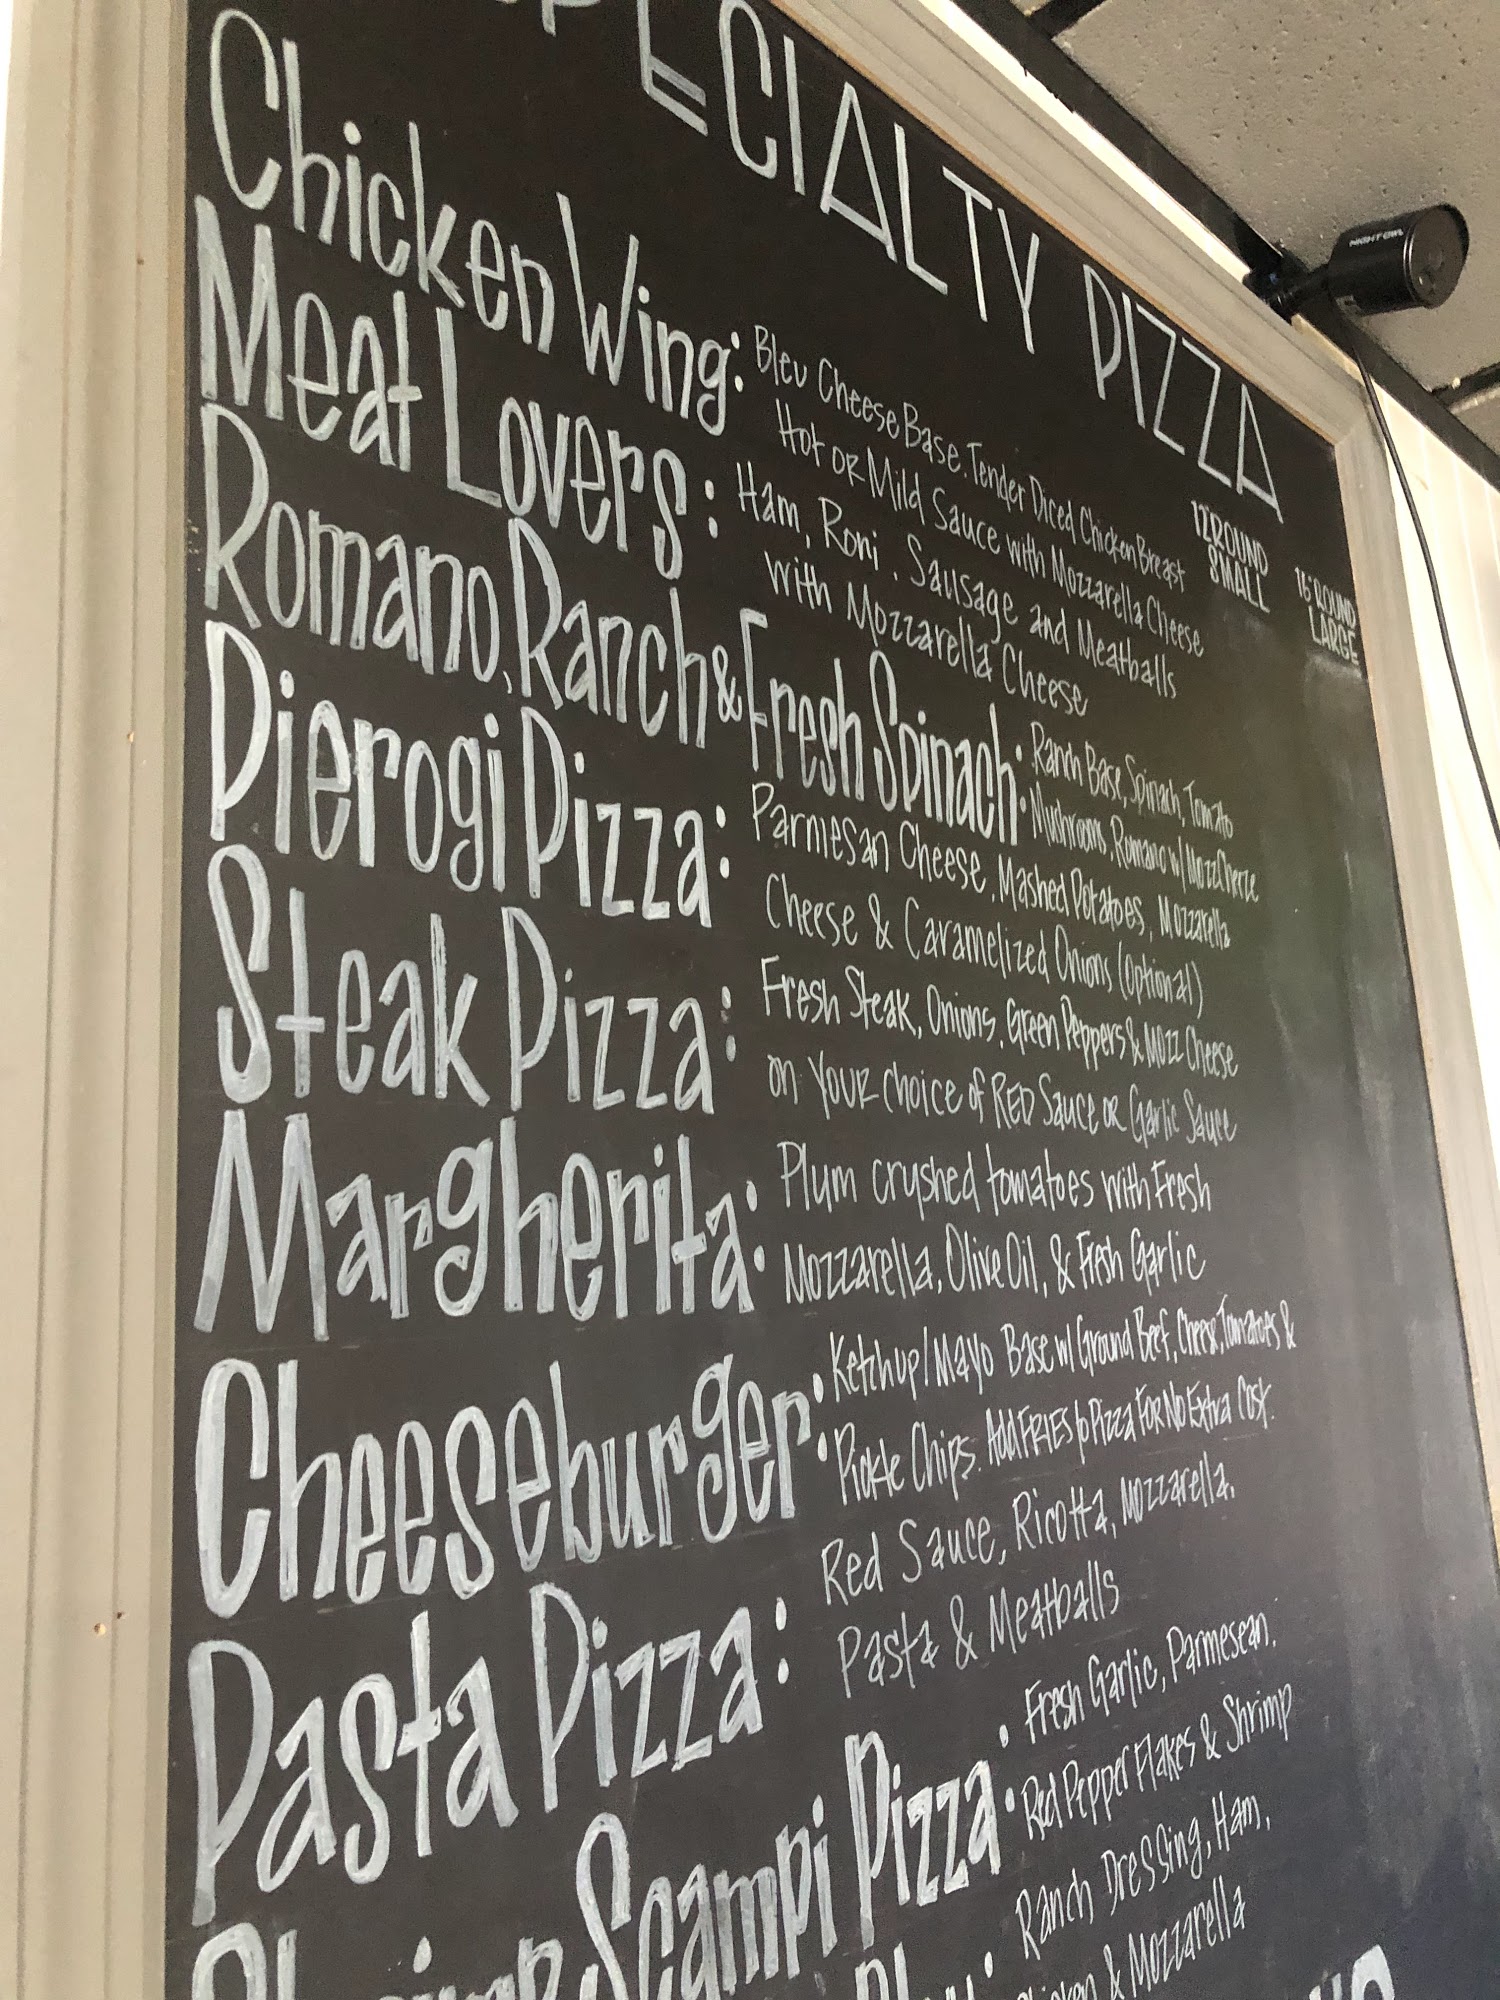 SPECIALTY PIZZA
12" ROUND SMALL
16" ROUND LARGE
NIGHT OWL
Chicken Wing: Bleu Cheese Base. Tender Diced Chicken Breast
Hot OR Mild Sauce with Mozzarella Cheese
Meat Lovers: Ham, Roni, Sausage and Meatballs
with Mozzarella Cheese
Romano, Ranch & Fresh Spinach: Ranch Base, Spinach, Tomato
Mushrooms, Romano w/ Mozz Cheese
Pierogi Pizza: Parmesan Cheese, Mashed Potatoes, Mozzarella
Cheese & Caramelized Onions (Optional)
Steak Pizza: Fresh Steak, Onions, Green Peppers & Mozz Cheese
on YOUR choice of RED Sauce OR Garlic Sauce
Margherita: Plum crushed tomatoes with Fresh
Mozzarella, Olive Oil, & Fresh Garlic
Cheeseburger: Ketchup/Mayo Base w/ Ground Beef, Cheese, Tomatoes &
Pickle Chips. Add FRIES to Pizza FOR No Extra Cost.
Pasta Pizza: Red Sauce, Ricotta, Mozzarella,
Pasta & Meatballs
Shrimp Scampi Pizza: Fresh Garlic, Parmesean,
Red Pepper Flakes & Shrimp
Ranch Dressing, Ham,
Chicken & Mozzarella